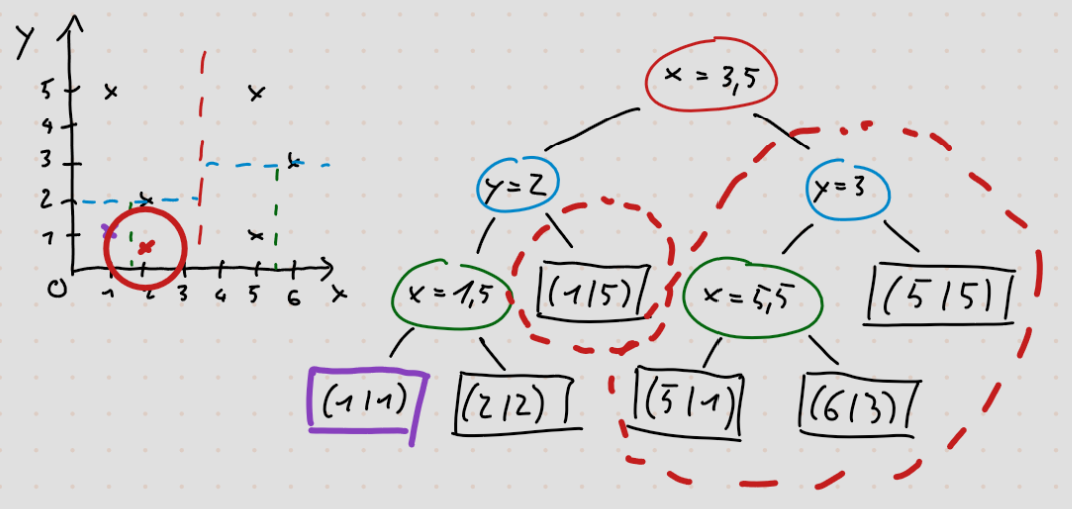 y
5
4
3
2
1
0
1 2 3 4 5 6 x
x = 3,5
y = 2
y = 3
x = 1,5
(1|5)
x = 5,5
(5|5)
(1|1)
(2|2)
(5|1)
(6|3)